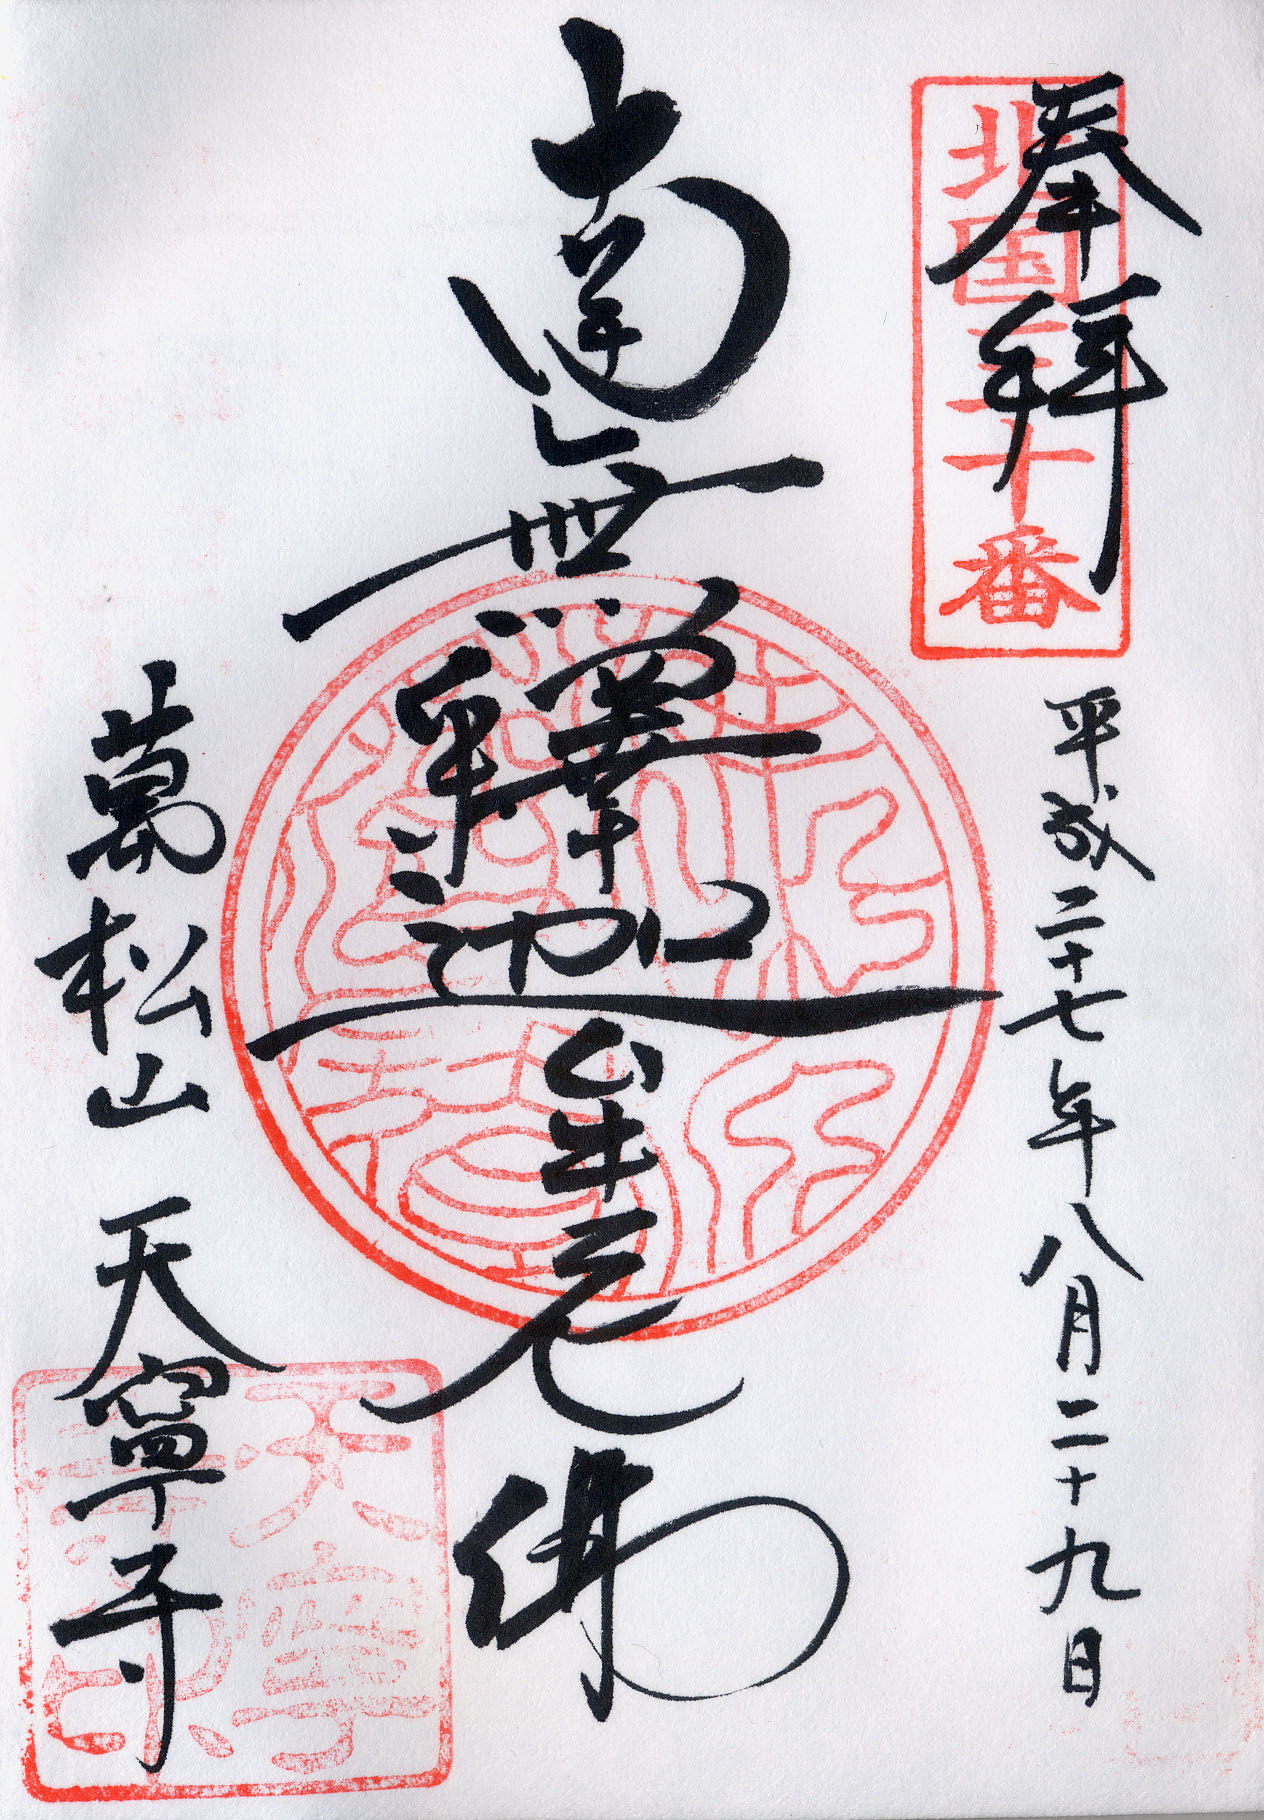 奉拝
北国三十番
平成二十七年八月二十九日
南無釋迦牟尼佛
萬松山 天寧寺
天寧寺印